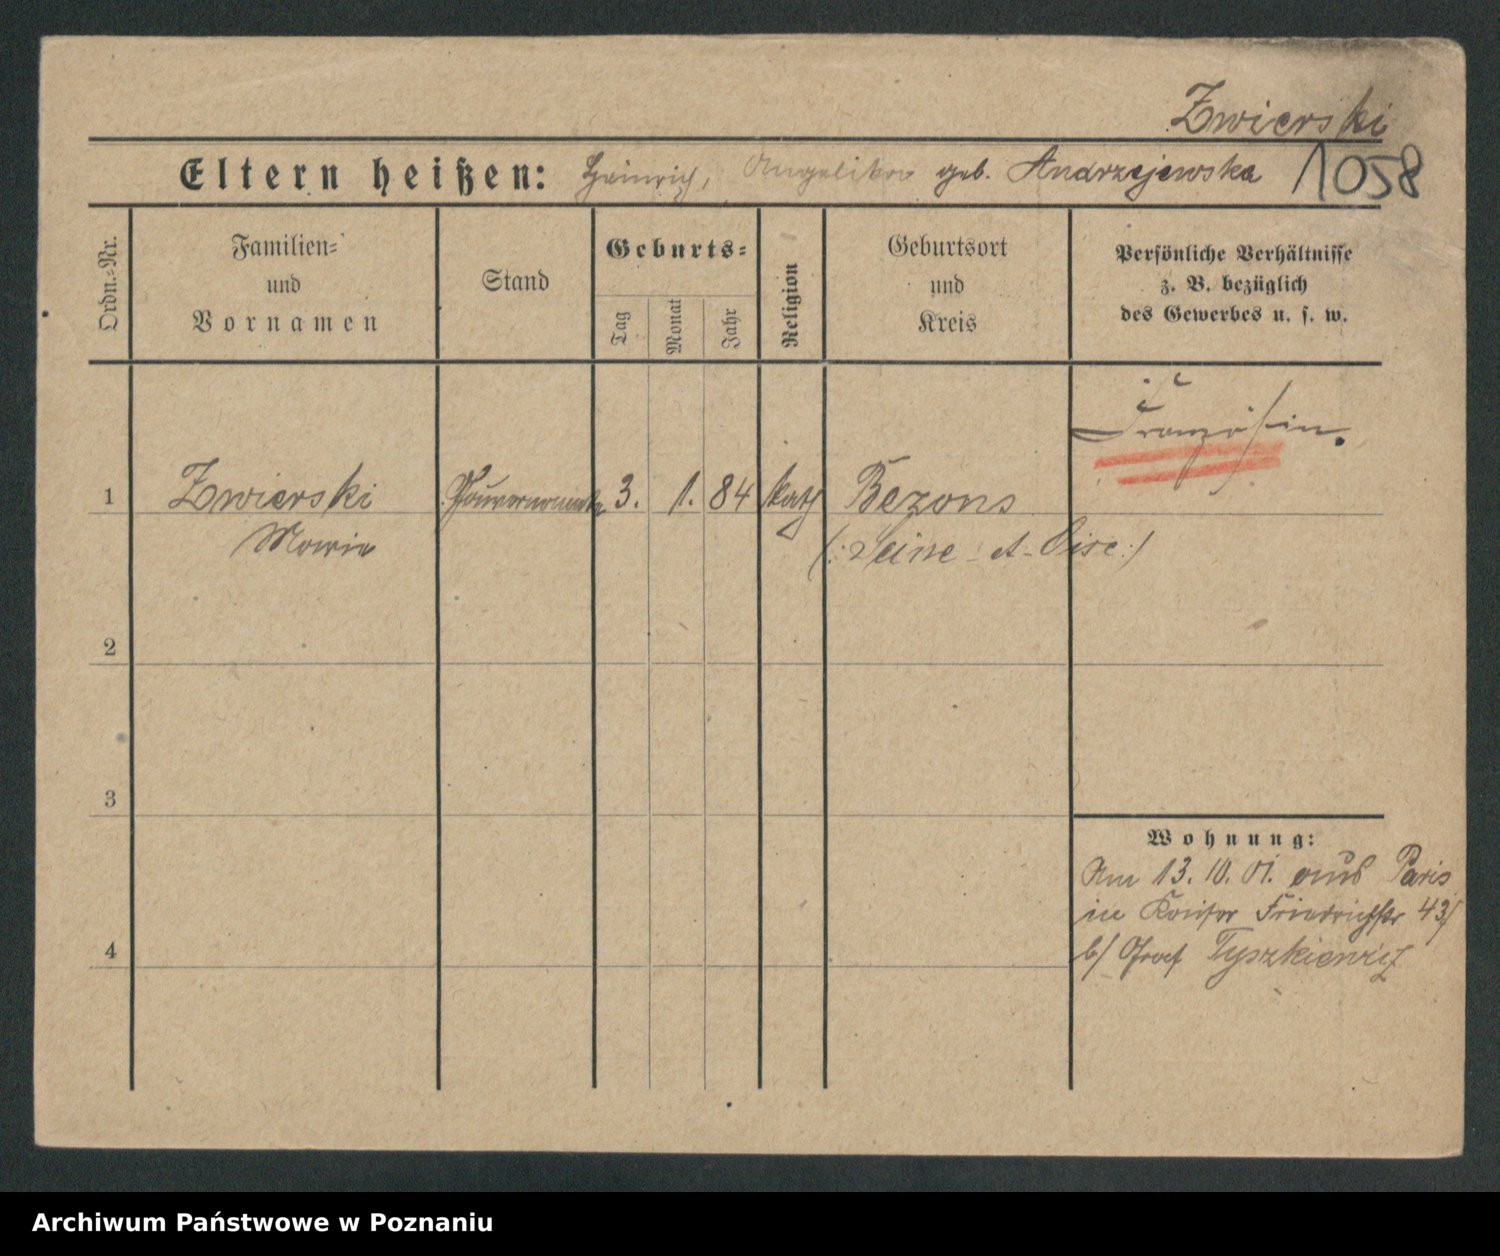 Zwierski
Eltern heißen: Heinrich, Angelika geb. Andrzejewska 1058
Ordn.-Nr.
Familien-
und
Vornamen
Stand
Geburts-
Tag
Monat
Jahr
Religion
Geburtsort
und
Kreis
Persönliche Verhältnisse
z. B. bezüglich
des Gewerbes u. s. w.
Französin.
1 Zwierski Gouvernante 3. 1. 84 kath Bezons
Marie (: Seine-et-Oise :)
2
3
4
Wohnung:
Am 13. 10. 01. aus Paris
in Friedrichstr 43/
b/ Graf Tyszkiewicz
Archiwum Państwowe w Poznaniu